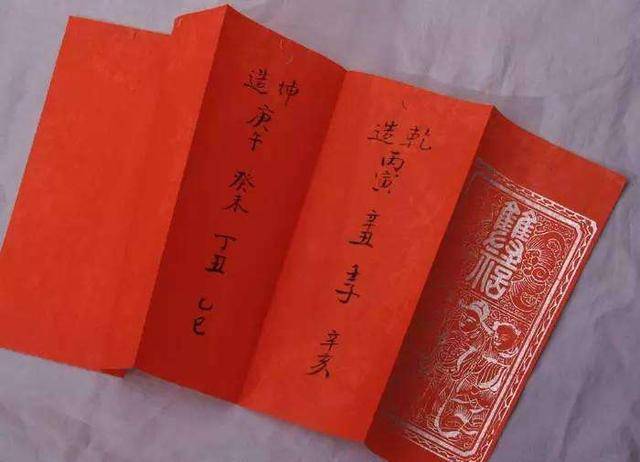 雙
乾造丙寅 辛丑 壬子 辛亥
坤造庚午 癸未 丁丑 乙巳